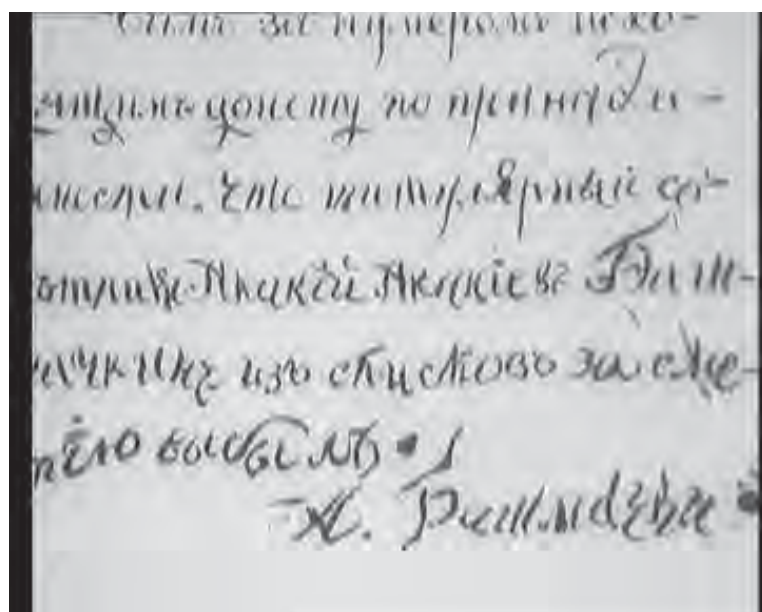 за нумеромъ исхо-
дящимъ доношу по принадле-
жности. Что титулярный со-
вѣтникъ Акакій Акакіевъ Баш-
мачкинъ изъ списковъ за смер-
тію выбылъ.
А. Башмачкин